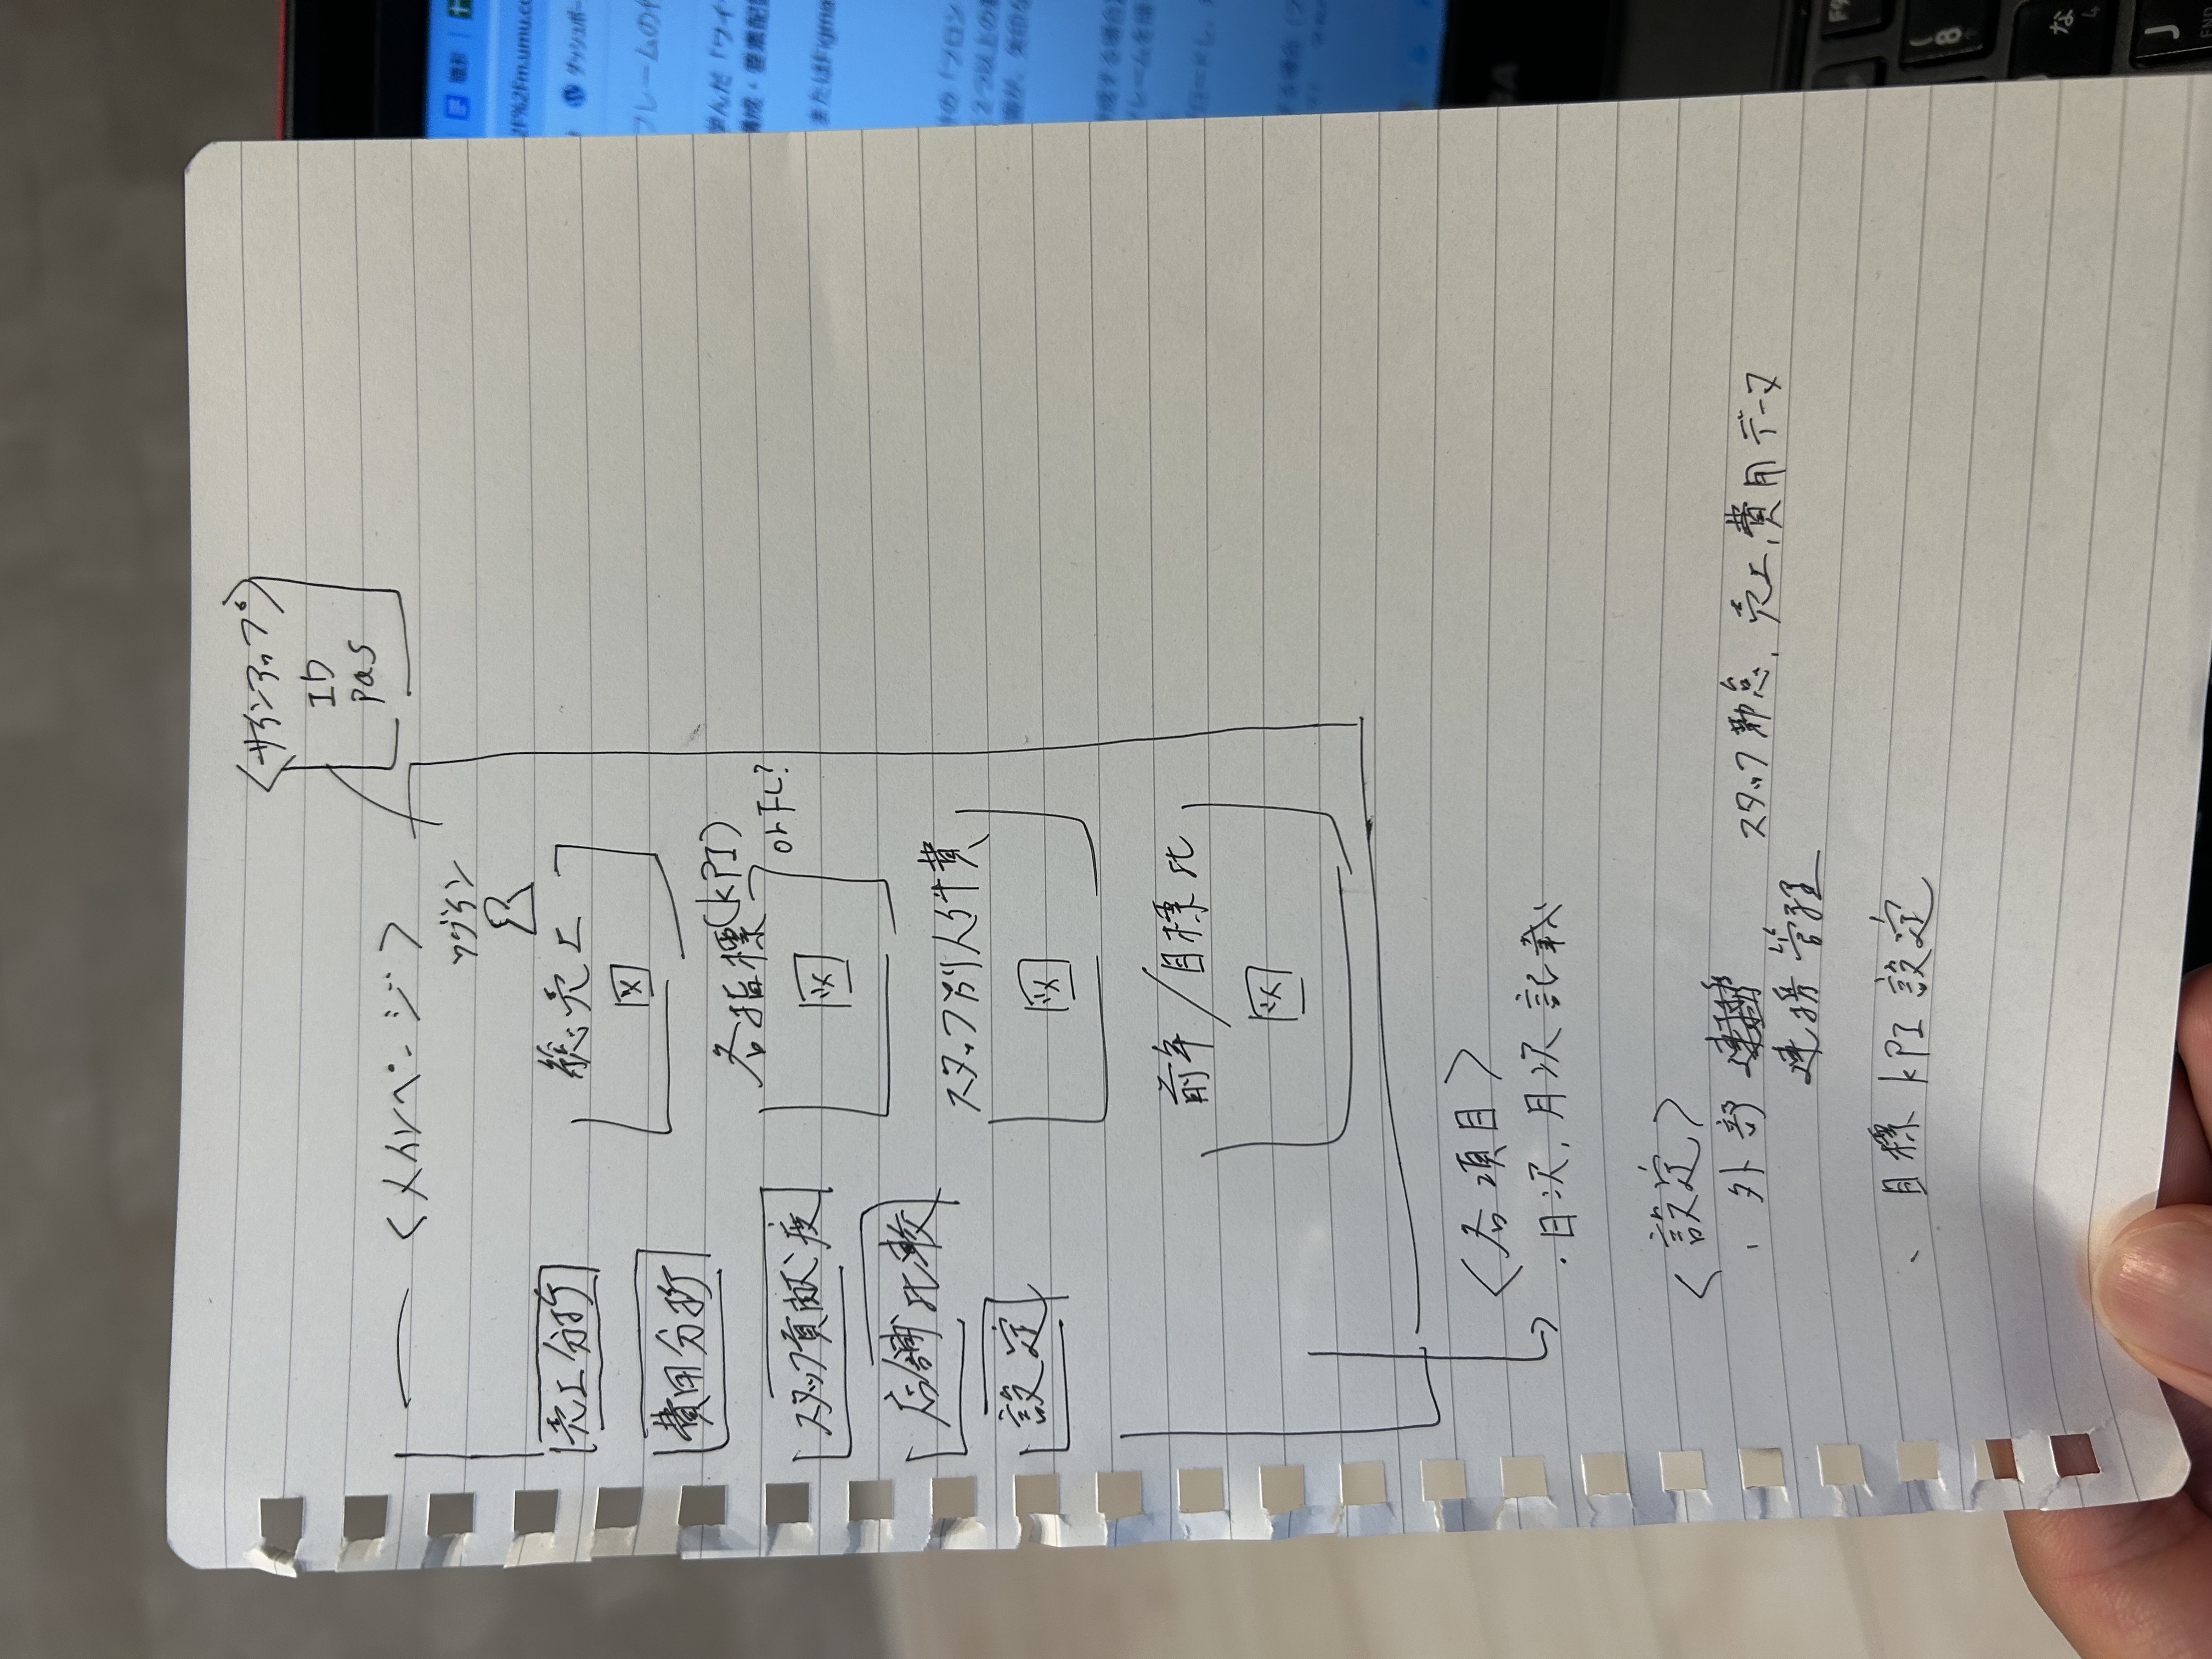 <サインアップ>
ID
pas
<メインページ>
ログイン
売上分析
費用分析
スタッフ貢献度
店舗比較
設定
総売上
図
各指標(KPI)
or FL?
図
スタッフ別人件費
図
前年/目標比
図
<各項目>
・日次,月次記載
<設定>
・外部
連携管理
スタッフ勤怠,売上,費用データ
・目標KPI設定
職彩
2F%2Fm.umu.co
ダッシュボー
フレームの作
学んだ「ワイ
構成・要素配
またはFigma
の「フロン
2つ以上の
F9
(
8
な
J
END